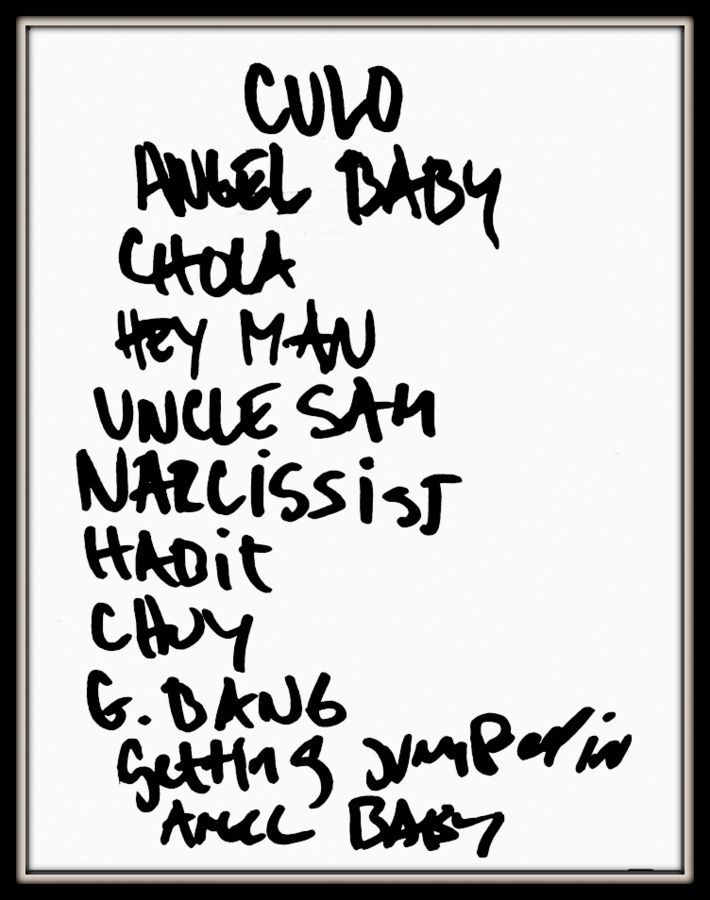 CULO
ANGEL BABY
CHOLA
HEY MAN
UNCLE SAM
NARCISSIST
HADIT
CHUY
G. BANG
Getting jumped in
ANGEL BABY